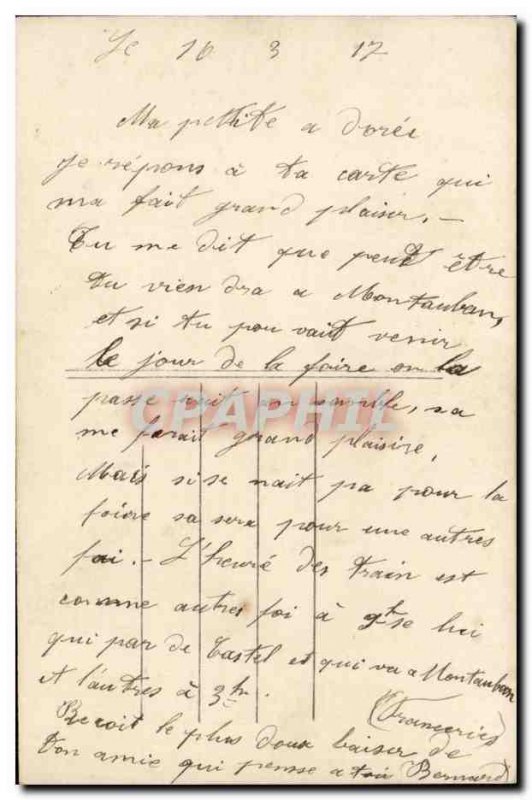 Le 16 3 17
Ma petite adorée
je répons à ta carte qui
ma fait grand plaisir, —
Tu me dit que peut être
tu vien dra a Montauban,
et si tu pou vait venir
le jour de la foire on la
passe rait en samble, sa
me ferait grand plaisire,
Mais si se nait pa pour la
foire sa sera pour une autres
foi. — L'heuré des train est
comme autres foi à 9h se lui
qui par de Castel et qui va a Montauban
et l'autres à 3h.
Recoit le plus doux baiser de
ton amie qui pensse a toi Bernard
CPAPHIL